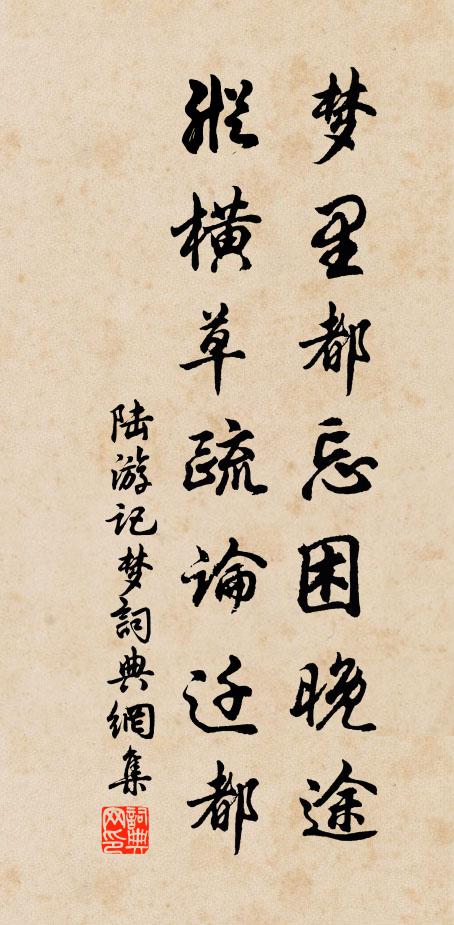 梦里都忘困晚途
纵横草疏论迁都
陆游记梦詞典網集
詞典网印